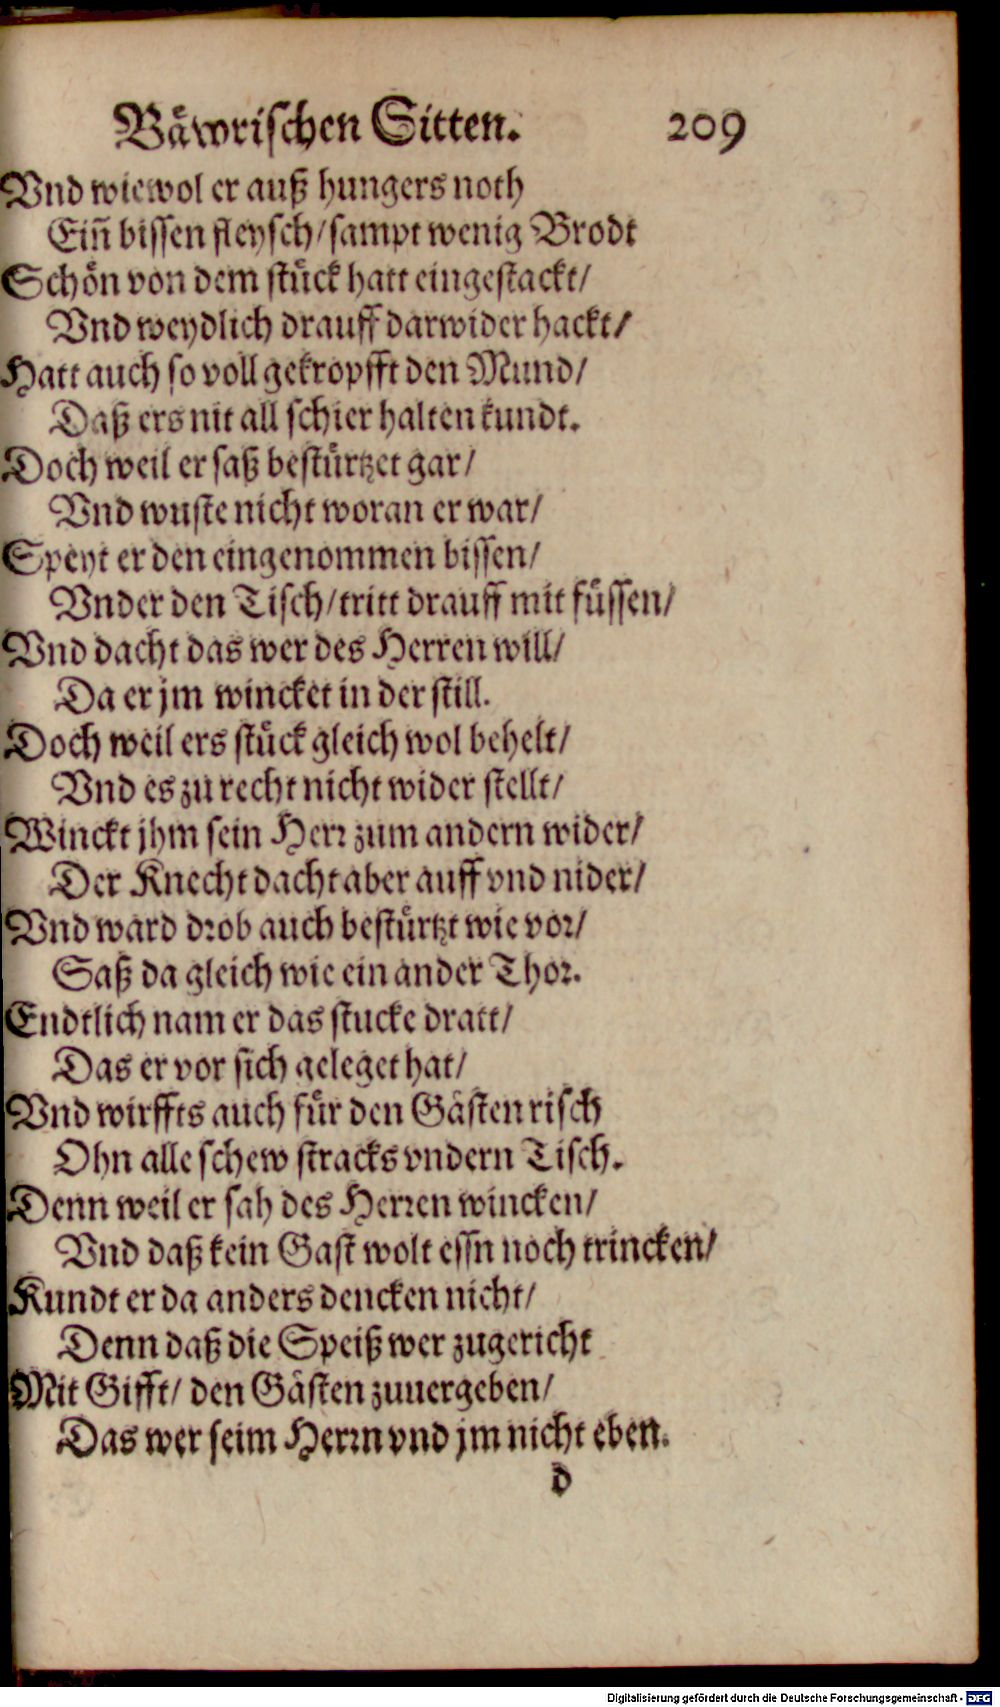 Bäwrischen Sitten. 209
Vnd wiewol er auß hungers noth
Eiñ bissen fleysch/ sampt wenig Brodt
Schön von dem stück hatt eingestackt/
Vnd weydlich drauff darwider hackt/
Hatt auch so voll gekropfft den Mund/
Daß ers nit all schier halten kundt.
Doch weil er saß bestürtzet gar/
Vnd wuste nicht woran er war/
Speyt er den eingenommen bissen/
Vnder den Tisch/ tritt drauff mit füssen/
Vnd dacht das wer des Herren will/
Da er jm wincket in der still.
Doch weil ers stück gleich wol behelt/
Vnd es zu recht nicht wider stellt/
Winckt jhm sein Herr zum andern wider/
Der Knecht dacht aber auff vnd nider/
Vnd ward drob auch bestürtzt wie vor/
Saß da gleich wie ein ander Thor.
Endtlich nam er das stucke dratt/
Das er vor sich geleget hat/
Vnd wirffts auch für den Gästen risch
Ohn alle schew stracks vndern Tisch.
Denn weil er sah des Herren wincken/
Vnd daß kein Gast wolt essn noch trincken/
Kundt er da anders dencken nicht/
Denn daß die Speiß wer zugericht
Mit Gifft/ den Gästen zuuergeben/
Das wer seim Herrn vnd jm nicht eben.
d
Digitalisierung gefördert durch die Deutsche Forschungsgemeinschaft - DFG